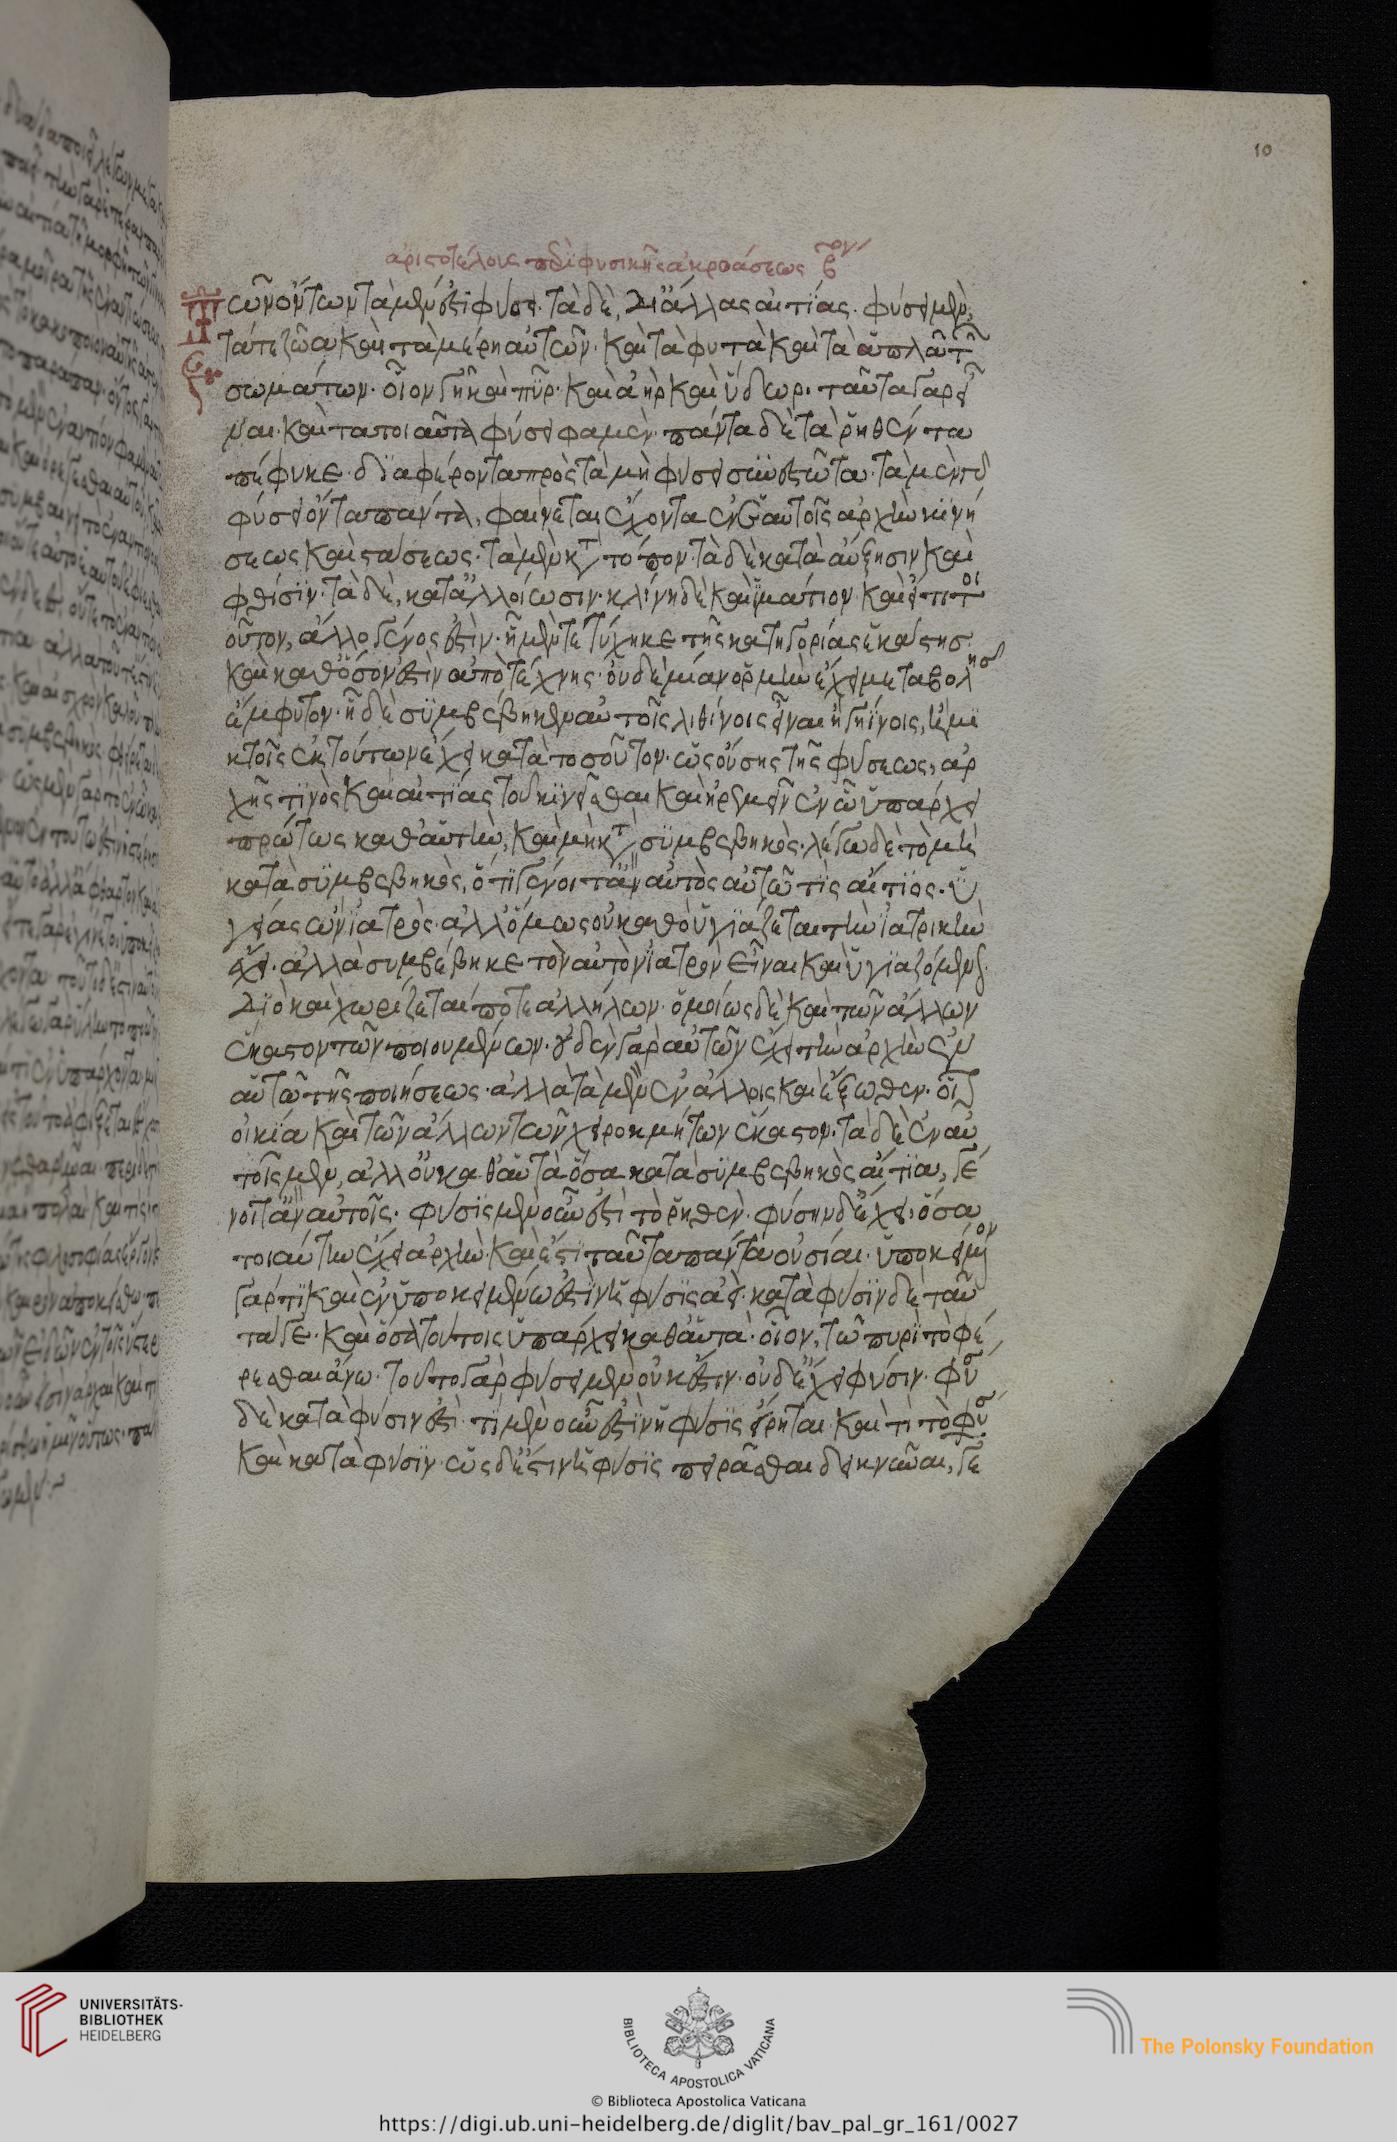 10
ἀριστοτέλους περὶ φυσικῆς ἀκροάσεως β̅ον
Τῶν ὄντων τὰ μέν ἐστι φύσει· τὰ δὲ, δι' ἄλλας αἰτίας· φύσει μὲν,
τά τε ζῶα καὶ τὰ μέρη αὐτῶν· καὶ τὰ φυτὰ καὶ τὰ ἁπλᾶ τῶν
σωμάτων· οἷον γῆ καὶ πῦρ· καὶ ἀὴρ καὶ ὕδωρ· ταῦτα γὰρ εἶ
ναι· καὶ τὰ τοιαῦτα φύσει φαμέν· πάντα δὲ τὰ ῥηθέντα
πέφυκε διαφέροντα πρὸς τὰ μὴ φύσει συνεστῶτα· τὰ μὲν γὰρ
φύσει ὄντα πάντα, φαίνεται ἔχοντα ἐν ἑαυτοῖς ἀρχὴν κινή
σεως καὶ στάσεως· τὰ μὲν κατὰ τόπον· τὰ δὲ κατὰ αὔξησιν καὶ
φθίσιν· τὰ δὲ, κατ' ἀλλοίωσιν· κλίνη δὲ καὶ ἱμάτιον καὶ εἴ τι τοι
οῦτον, ἄλλο γένος ἐστὶν· ᾗ μὲν τετύχηκε τῆς κατηγορίας ἑκάστης
καὶ καθόσον ἐστὶν ἀπὸ τέχνης· οὐδεμίαν ὁρμὴν ἔχει μεταβολῆς
ἔμφυτον· ᾗ δὲ συμβέβηκεν αὐτοῖς λιθίνοις εἶναι ἢ γηΐνοις, ἢ μι
κτοῖς ἐκ τούτων ἔχει κατὰ τοσοῦτον· ὡς οὔσης τῆς φύσεως, ἀρ
χῆς τινὸς καὶ αἰτίας τοῦ κινεῖσθαι καὶ ἠρεμεῖν ἐν ὧ ὑπάρχει
πρώτως καθ' αὑτὴν, καὶ μὴ κατὰ συμβεβηκὸς· λέγω δὲ τὸ μὴ
κατὰ συμβεβηκὸς, ὅτι γένοιτ' ἂν αὐτὸς αὑτῶ τις αἴτιος· ὑ
γείας ὢν ἰατρὸς· ἀλλ' ὅμως οὐ καθὸ ὑγιάζεται τὴν ἰατρικὴν
ἔχει· ἀλλὰ συμβέβηκε τὸν αὐτὸν ἰατρὸν εἶναι καὶ ὑγιαζόμενον·
διὸ καὶ χωρίζεταί ποτε ἀλλήλων· ὁμοίως δὲ καὶ τῶν ἄλλων
ἕκαστον τῶν ποιουμένων· οὐδὲν γὰρ αὐτῶν ἔχει τὴν ἀρχὴν ἐν
αὑτῶ τῆς ποιήσεως· ἀλλὰ τὰ μὲν ἐν ἄλλοις καὶ ἔξωθεν· οἷον
οἰκία καὶ τῶν ἄλλων τῶν χειροκμήτων ἕκαστον· τὰ δὲ ἐν αὑ
τοῖς μὲν, ἀλλ' οὐ καθ' αὑτὰ ὅσα κατὰ συμβεβηκὸς αἴτια, γέ
νοιτ' ἂν αὑτοῖς· φύσις μὲν οὖν ἐστὶ τὸ ῥηθέν· φύσιν δὲ ἔχει· ὅσα
τοιαύτην ἔχει ἀρχὴν· καὶ ἔστι ταῦτα πάντα οὐσίαι· ὑποκείμενον
γάρ τι καὶ ἐν ὑποκειμένω ἐστὶν ἡ φύσις ἀεί· κατὰ φύσιν δὲ ταῦ
τά γε· καὶ ὅσα τούτοις ὑπάρχει καθ' αὑτὰ· οἷον, τῶ πυρὶ τὸ φέ
ρεσθαι ἄνω· τοῦτο γὰρ φύσει μὲν οὐκ ἔστιν· οὐδὲ ἔχει φύσιν· φύσει
δὲ κατὰ φύσιν ἐστί· τί μὲν οὖν ἐστὶν ἡ φύσις εἴρηται· καὶ τί τὸ φύσει
καὶ κατὰ φύσιν· ὡς δὲ ἔστιν ἡ φύσις πειρᾶσθαι δεικνύναι, γε
UNIVERSITÄTS-
BIBLIOTHEK
HEIDELBERG
BIBLIOTECA APOSTOLICA VATICANA
© Biblioteca Apostolica Vaticana
The Polonsky Foundation
https://digi.ub.uni-heidelberg.de/diglit/bav_pal_gr_161/0027